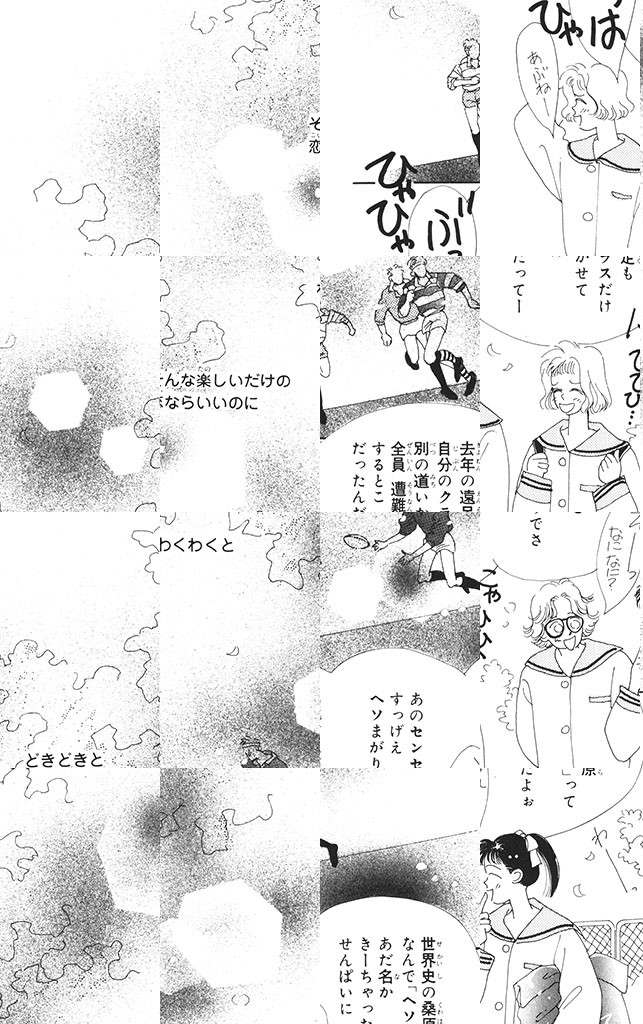 ひゃ
は
あぶねー
ひゃ
ひゃ
ぶ
そ
恋
んな楽しいだけの
ならいいのに
わくわくと
どきどきと
足も
ラスだけ
かせて
だってー
去年の遠足
自分のクラ
別の道いか
全員 遭難
するとこ
だったんだ
でさ
なになに?
ひゃひひ
あのセンセ
すっげえ
ヘソまがり
原
」って
たよぉ
わ
世界史の桑原
なんで「ヘソ
あだ名か
きーちゃった
せんぱいに